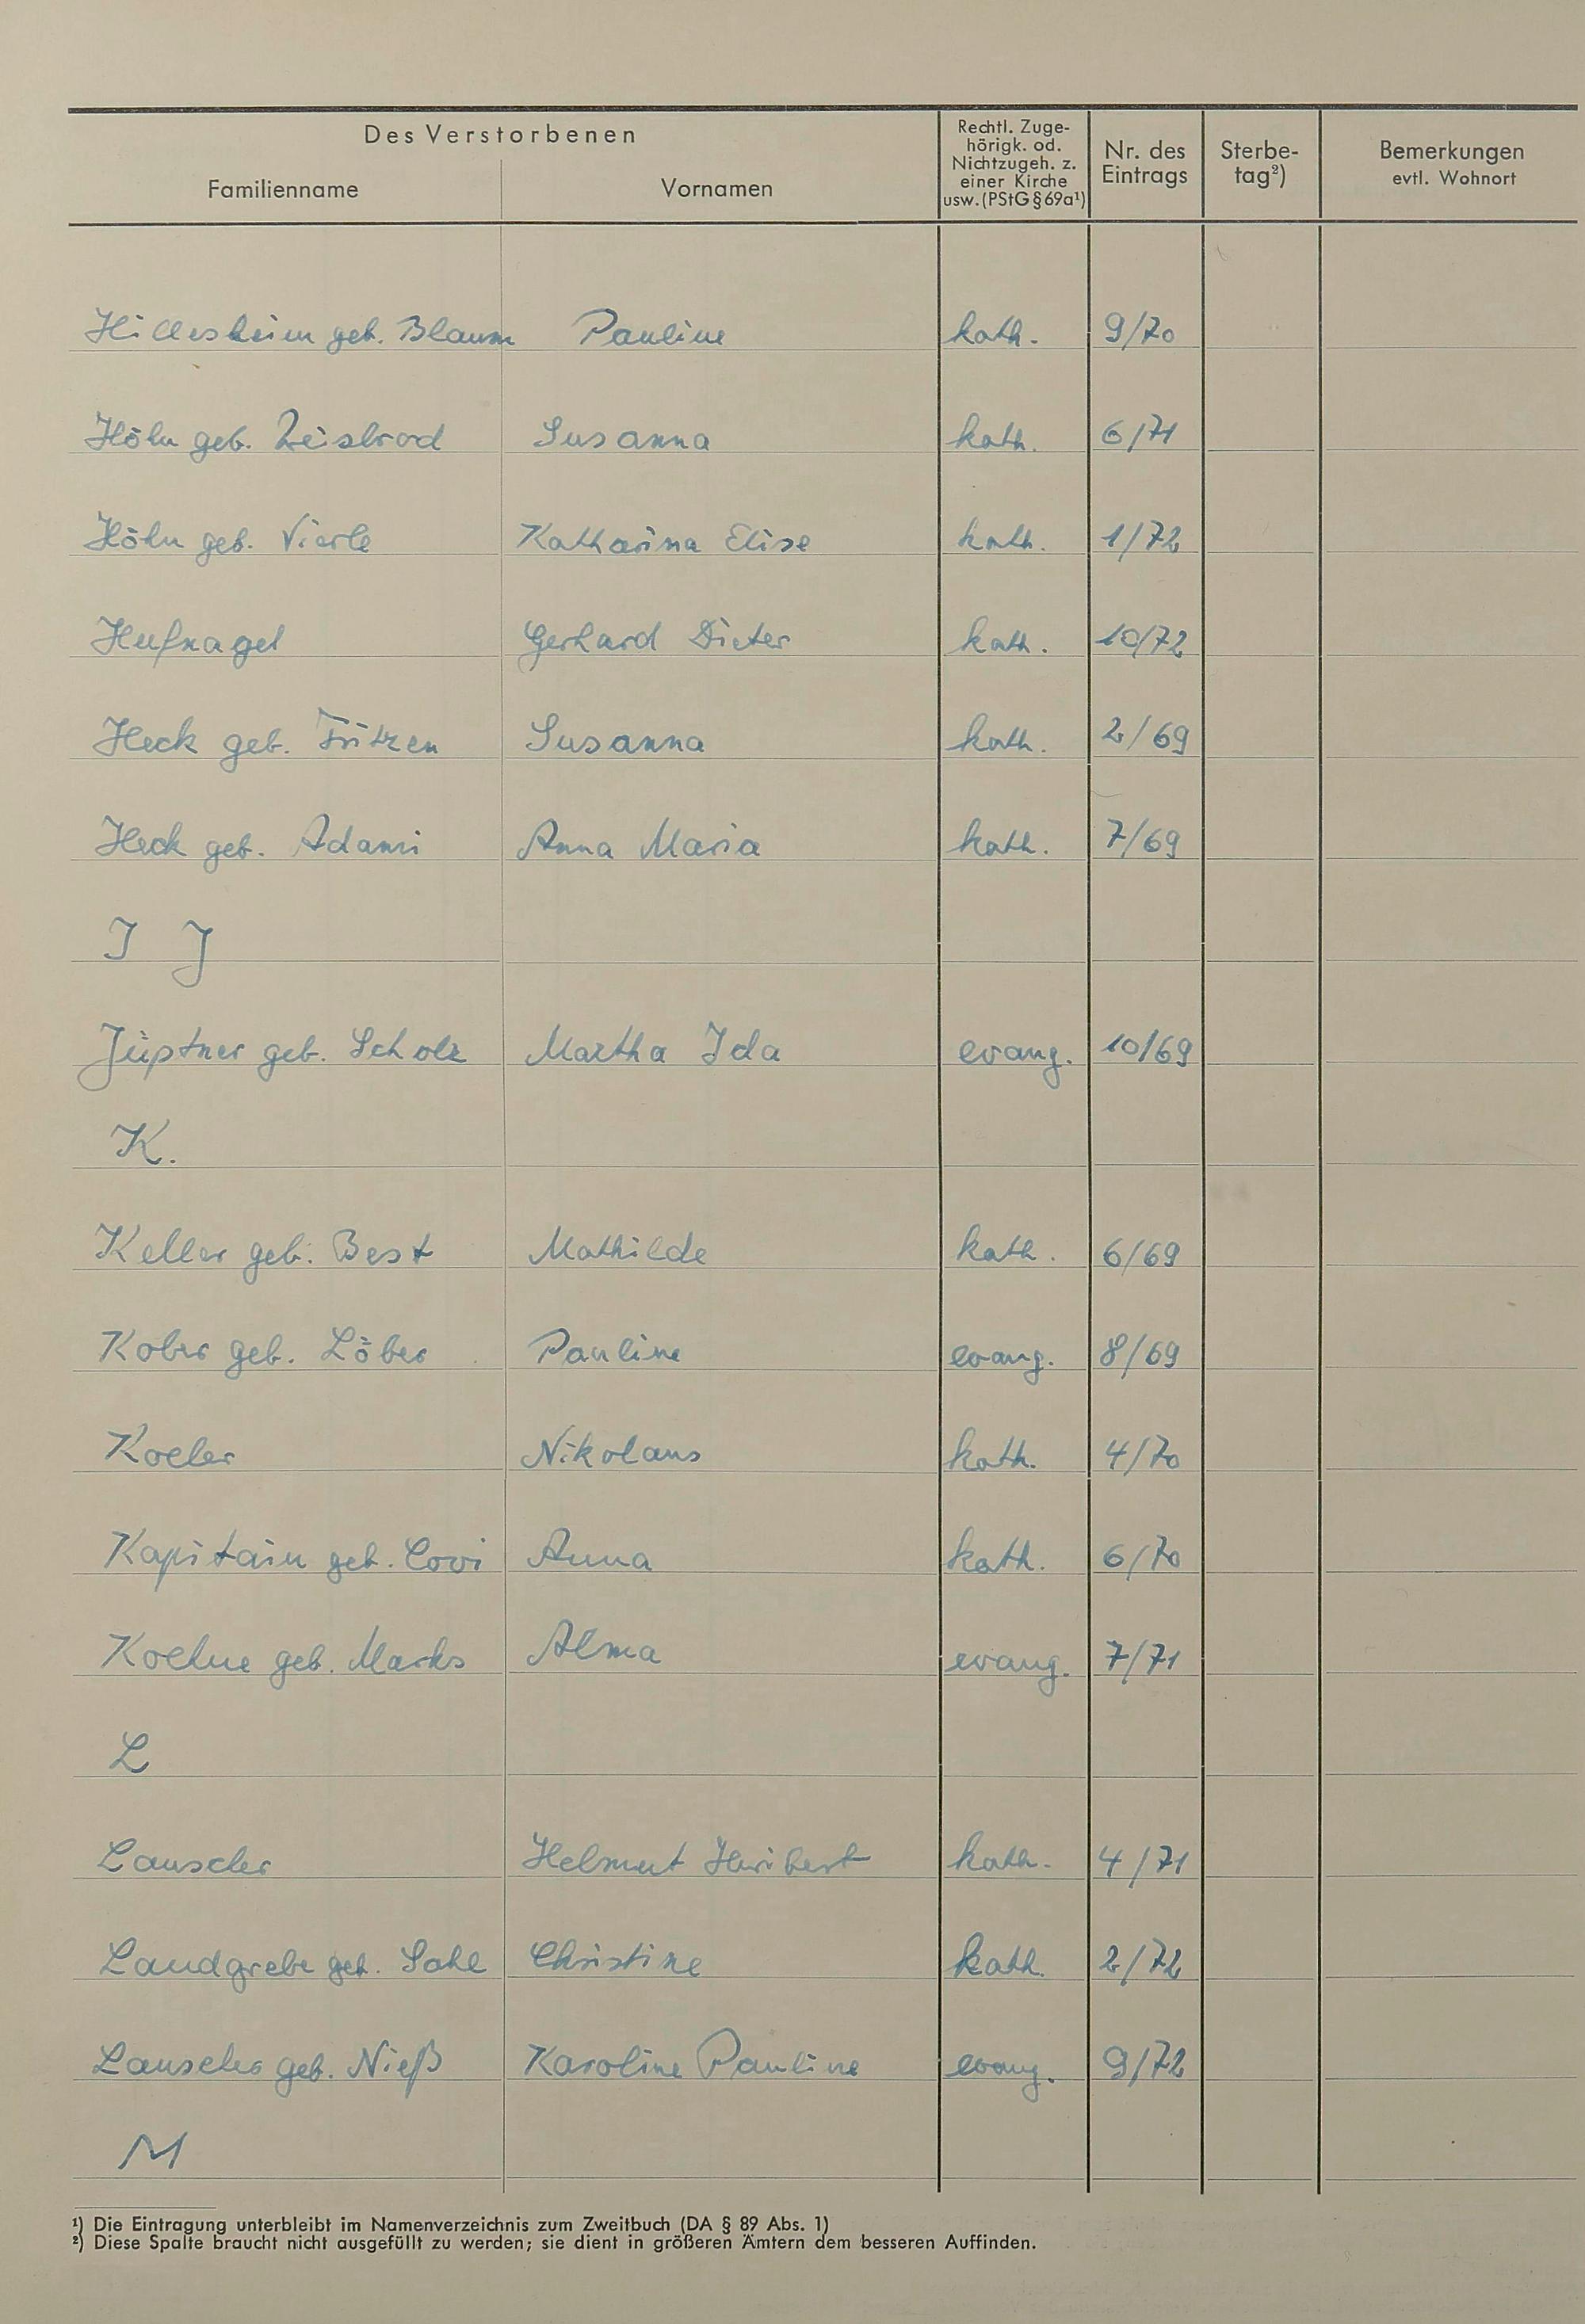 Des Verstorbenen
Familienname Vornamen
Rechtl. Zuge-
hörigk. od.
Nichtzugeh. z.
einer Kirche
usw. (PStG § 69a¹)
Nr. des
Eintrags
Sterbe-
tag²)
Bemerkungen
evtl. Wohnort
Hillesheim geb. Blaum Pauline kath. 9/70
Höhn geb. Zeisbrod Susanna kath. 6/71
Höhn geb. Vierle Katharina Elise kath. 1/72
Hufnagel Gerhard Dieter kath. 10/72
Heck geb. Fritzen Susanna kath. 2/69
Heck geb. Adami Anna Maria kath. 7/69
I J
Jüptner geb. Scholz Martha Ida evang. 10/69
K.
Keller geb. Best Mathilde kath. 6/69
Kober geb. Löber Pauline evang. 8/69
Koeler Nikolaus kath. 4/70
Kapitain geb. Covi Anna kath. 6/70
Koehne geb. Marks Alma evang. 7/71
L
Lauscher Helmut Heribert kath. 4/71
Landgrebe geb. Sahl Christine kath. 2/72
Lauscher geb. Nieß Karoline Pauline evang. 9/72
M
¹) Die Eintragung unterbleibt im Namenverzeichnis zum Zweitbuch (DA § 89 Abs. 1)
²) Diese Spalte braucht nicht ausgefüllt zu werden; sie dient in größeren Ämtern dem besseren Auffinden.